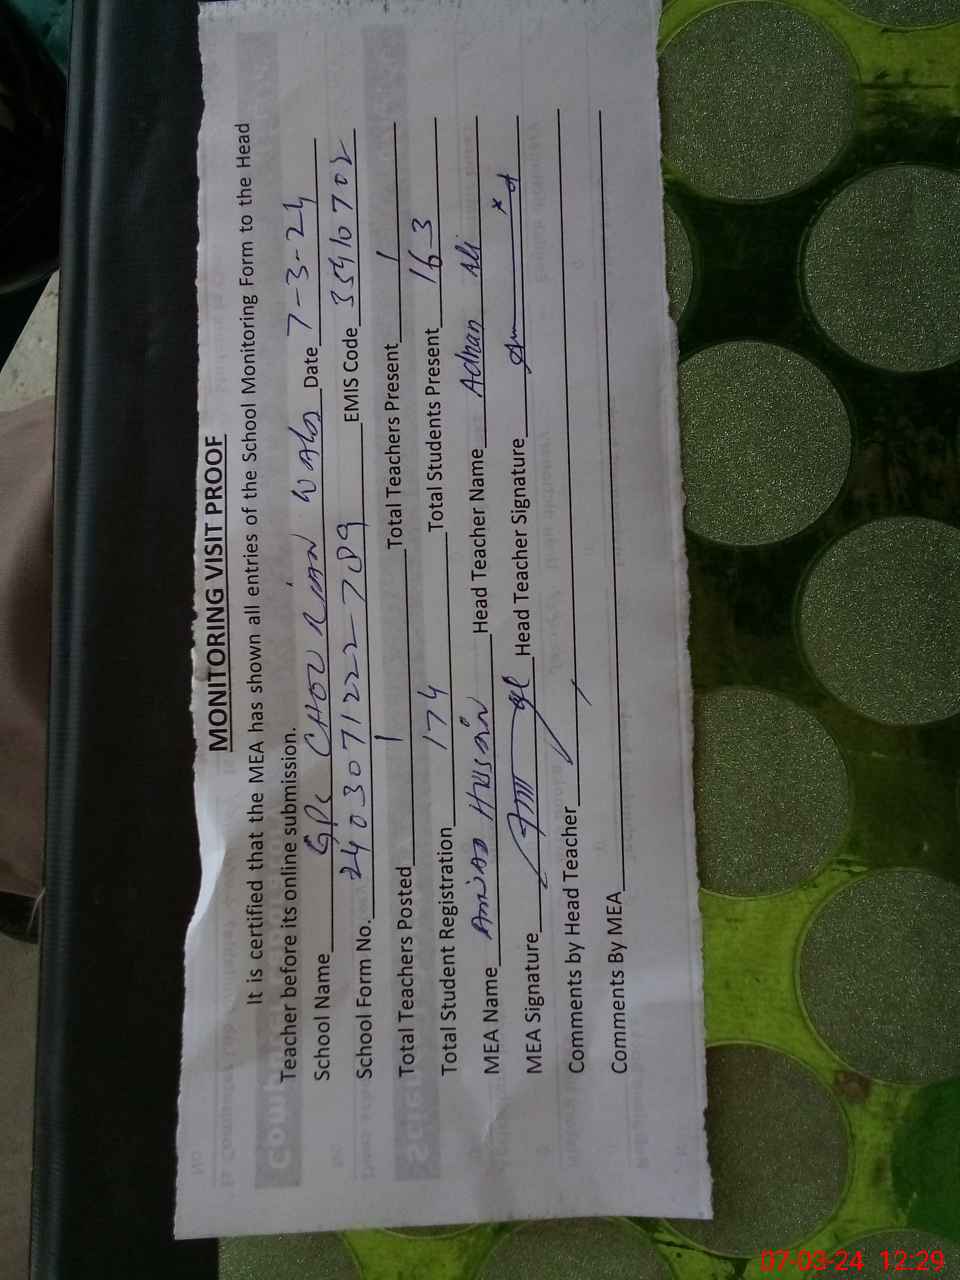 MONITORING VISIT PROOF
It is certified that the MEA has shown all entries of the School Monitoring Form to the Head
Teacher before its online submission.
School Name GPS Date 7-3-24
School Form No. 2403071222789 EMIS Code 35410702
Total Teachers Posted 1 Total Teachers Present 1
Total Student Registration 174 Total Students Present 163
MEA Name Amjad Hussain Head Teacher Name Adnan Ali
MEA Signature Head Teacher Signature
Comments by Head Teacher
Comments By MEA
07-03-24 12:29